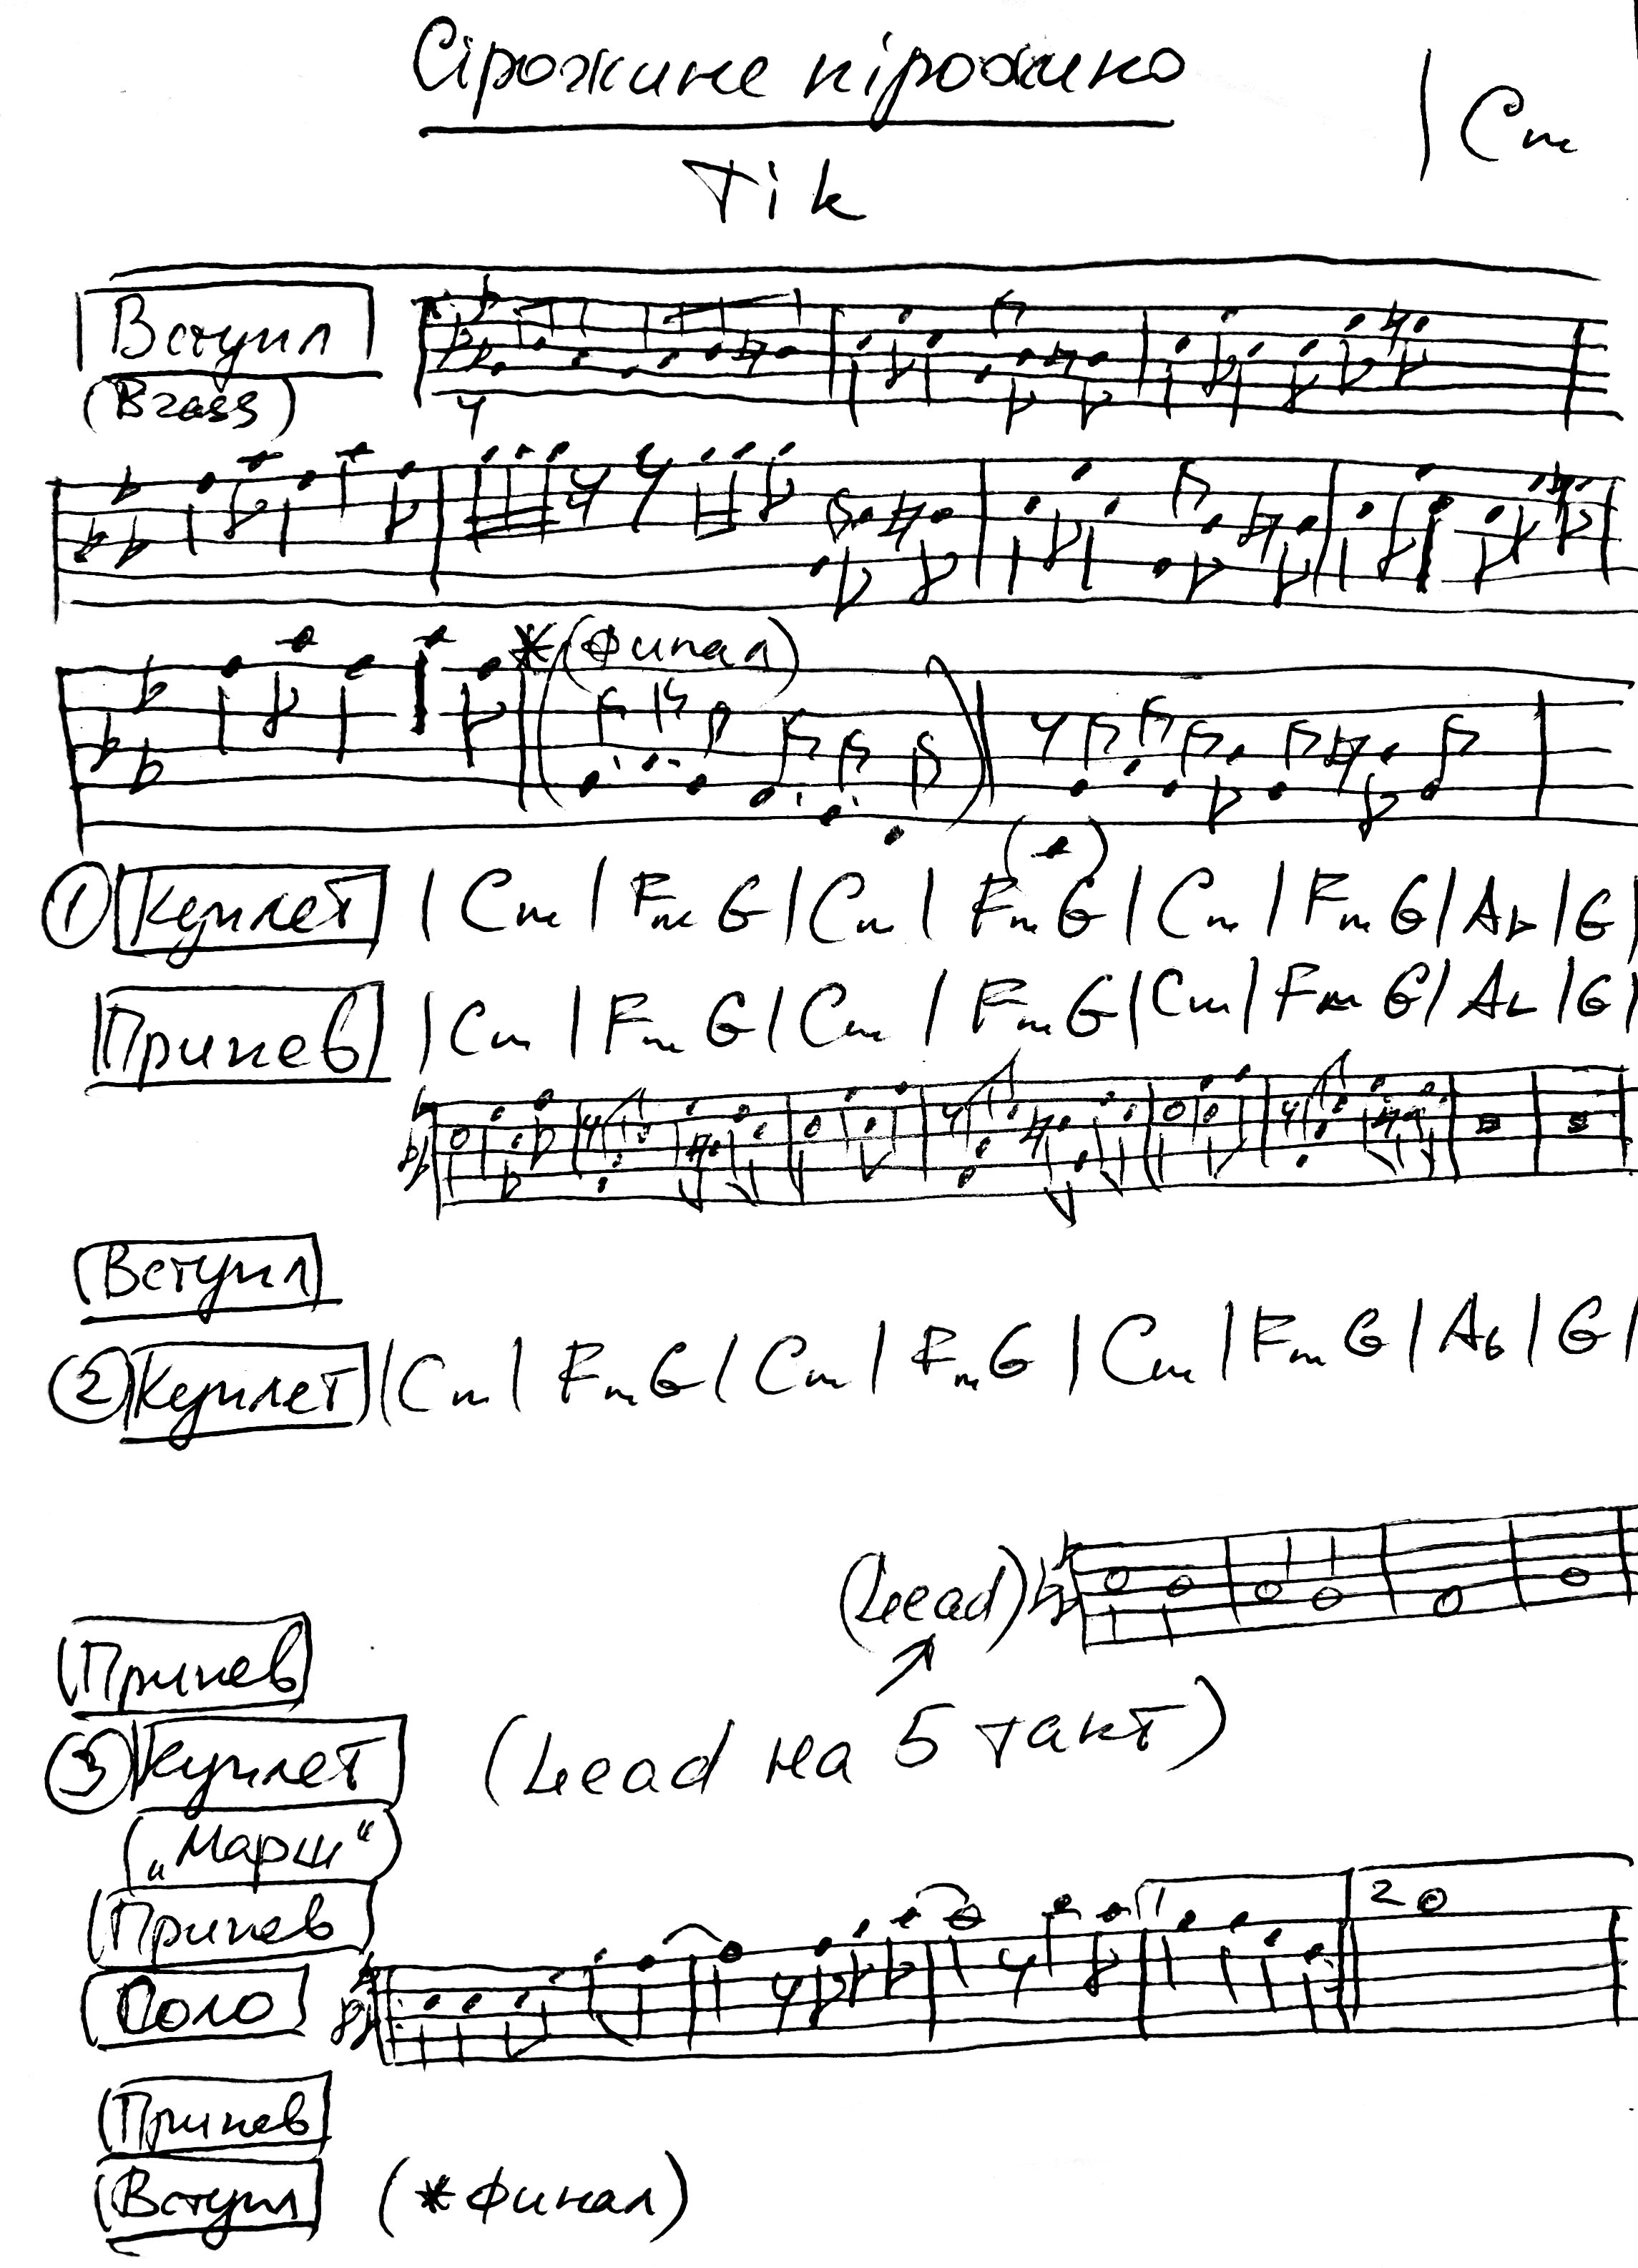 Сірожине піррожино
| Cm
Тік
Вступл
(Brass)
*(Финал)
① Куплет | Cm | Fm G | Cm | Fm G | Cm | Fm G | Ab | G |
Припев | Cm | Fm G | Cm | Fm G | Cm | Fm G | Ab | G |
Вступл
② Куплет | Cm | Fm G | Cm | Fm G | Cm | Fm G | Ab | G |
(Lead)
Припев
③ Куплет (Lead на 5 такт)
(„Марш“)
Припев
1 2
Соло
Припев
Вступл (*Финал)